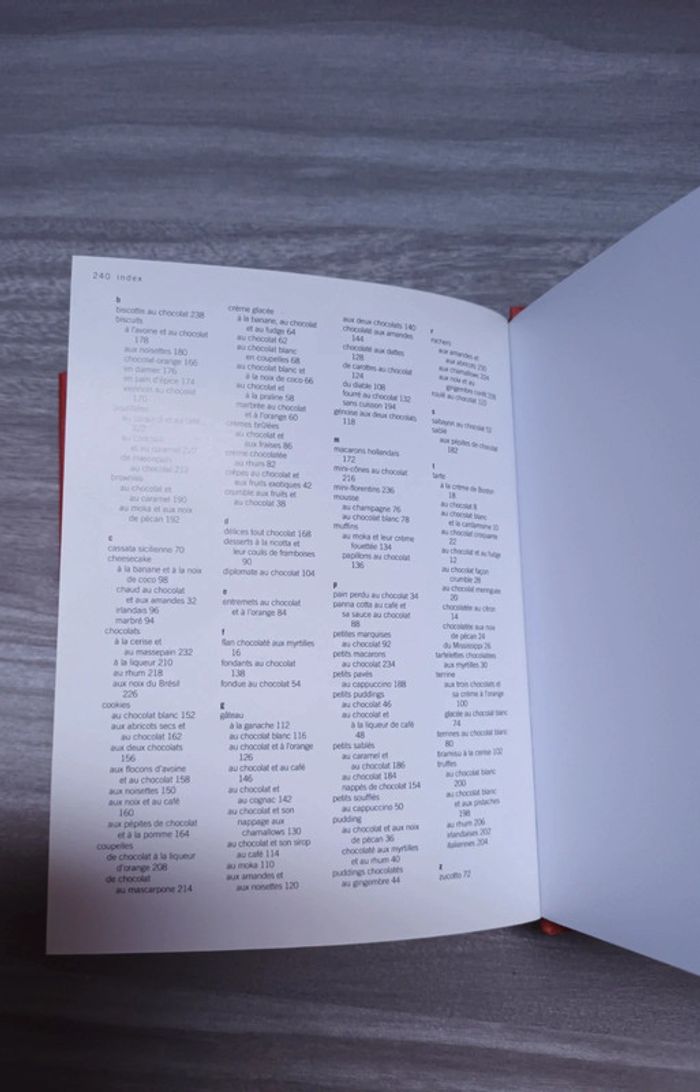 240 index
b
biscottis au chocolat 238
biscuits
à l'avoine et au chocolat
178
aux noisettes 180
chocolat-orange 166
en damier 176
en pain d'épice 174
au chocolat
170
au caramel 227
de mascarpone
au chocolat 212
brownies
au chocolat et
au caramel 190
au moka et aux noix
de pécan 192
c
cassata sicilienne 70
cheesecake
à la banane et à la noix
de coco 98
chaud au chocolat
et aux amandes 32
irlandais 96
marbré 94
chocolats
à la cerise et
au massepain 232
à la liqueur 210
au rhum 218
aux noix du Brésil
226
cookies
au chocolat blanc 152
aux abricots secs et
au chocolat 162
aux deux chocolats
156
aux flocons d'avoine
et au chocolat 158
aux noisettes 150
aux noix et au café
160
aux pépites de chocolat
et à la pomme 164
coupelles
de chocolat à la liqueur
d'orange 208
de chocolat
au mascarpone 214
crème glacée
à la banane, au chocolat
et au fudge 64
au chocolat 62
au chocolat blanc
en coupelles 68
au chocolat blanc et
à la noix de coco 66
au chocolat et
à la praline 58
marbrée au chocolat
et à l'orange 60
crèmes brûlées
au chocolat et
aux fraises 86
crème chocolatée
au rhum 82
crêpes au chocolat et
aux fruits exotiques 42
crumble aux fruits et
au chocolat 38
d
délices tout chocolat 168
desserts à la ricotta et
leur coulis de framboises
90
diplomate au chocolat 104
e
entremets au chocolat
et à l'orange 84
f
flan chocolaté aux myrtilles
16
fondants au chocolat
138
fondue au chocolat 54
g
gâteau
à la ganache 112
au chocolat blanc 116
au chocolat et à l'orange
126
au chocolat et au café
146
au chocolat et
au cognac 142
au chocolat et son
nappage aux
chamallows 130
au chocolat et son sirop
au café 114
au moka 110
aux amandes et
aux noisettes 120
aux deux chocolats 140
chocolaté aux amandes
144
chocolaté aux dattes
128
de carottes au chocolat
124
du diable 108
fourré au chocolat 132
sans cuisson 194
génoise aux deux chocolats
118
m
macarons hollandais
172
mini-cônes au chocolat
216
mini-florentins 236
mousse
au champagne 76
au chocolat blanc 78
muffins
au moka et leur crème
fouettée 134
papillons au chocolat
136
p
pain perdu au chocolat 34
panna cotta au café et
sa sauce au chocolat
88
petites marquises
au chocolat 92
petits macarons
au chocolat 234
petits pavés
au cappuccino 188
petits puddings
au chocolat 46
au chocolat et
à la liqueur de café
48
petits sablés
au caramel et
au chocolat 186
au chocolat 184
nappés de chocolat 154
petits soufflés
au cappuccino 50
pudding
au chocolat et aux noix
de pécan 36
chocolaté aux myrtilles
et au rhum 40
puddings chocolatés
au gingembre 44
r
rochers
aux amandes et
aux abricots 230
aux chamallows 224
aux noix et au
gingembre confit 228
roulé au chocolat 122
s
sabayon au chocolat 52
sablé
aux pépites de chocolat
182
t
tarte
à la crème de Boston
18
au chocolat 8
au chocolat blanc
et la cardamome 10
au chocolat croquante
22
au chocolat et au fudge
12
au chocolat façon
crumble 28
au chocolat meringuée
20
chocolatée au citron
14
chocolatée aux noix
de pécan 24
du Mississippi 26
tartelettes chocolatées
aux myrtilles 30
terrine
aux trois chocolats et
sa crème à l'orange
100
glacée au chocolat blanc
74
terrines au chocolat blanc
80
tiramisu à la cerise 102
truffes
au chocolat blanc
200
au chocolat blanc
et aux pistaches
198
au rhum 206
irlandaises 202
italiennes 204
z
zucotto 72